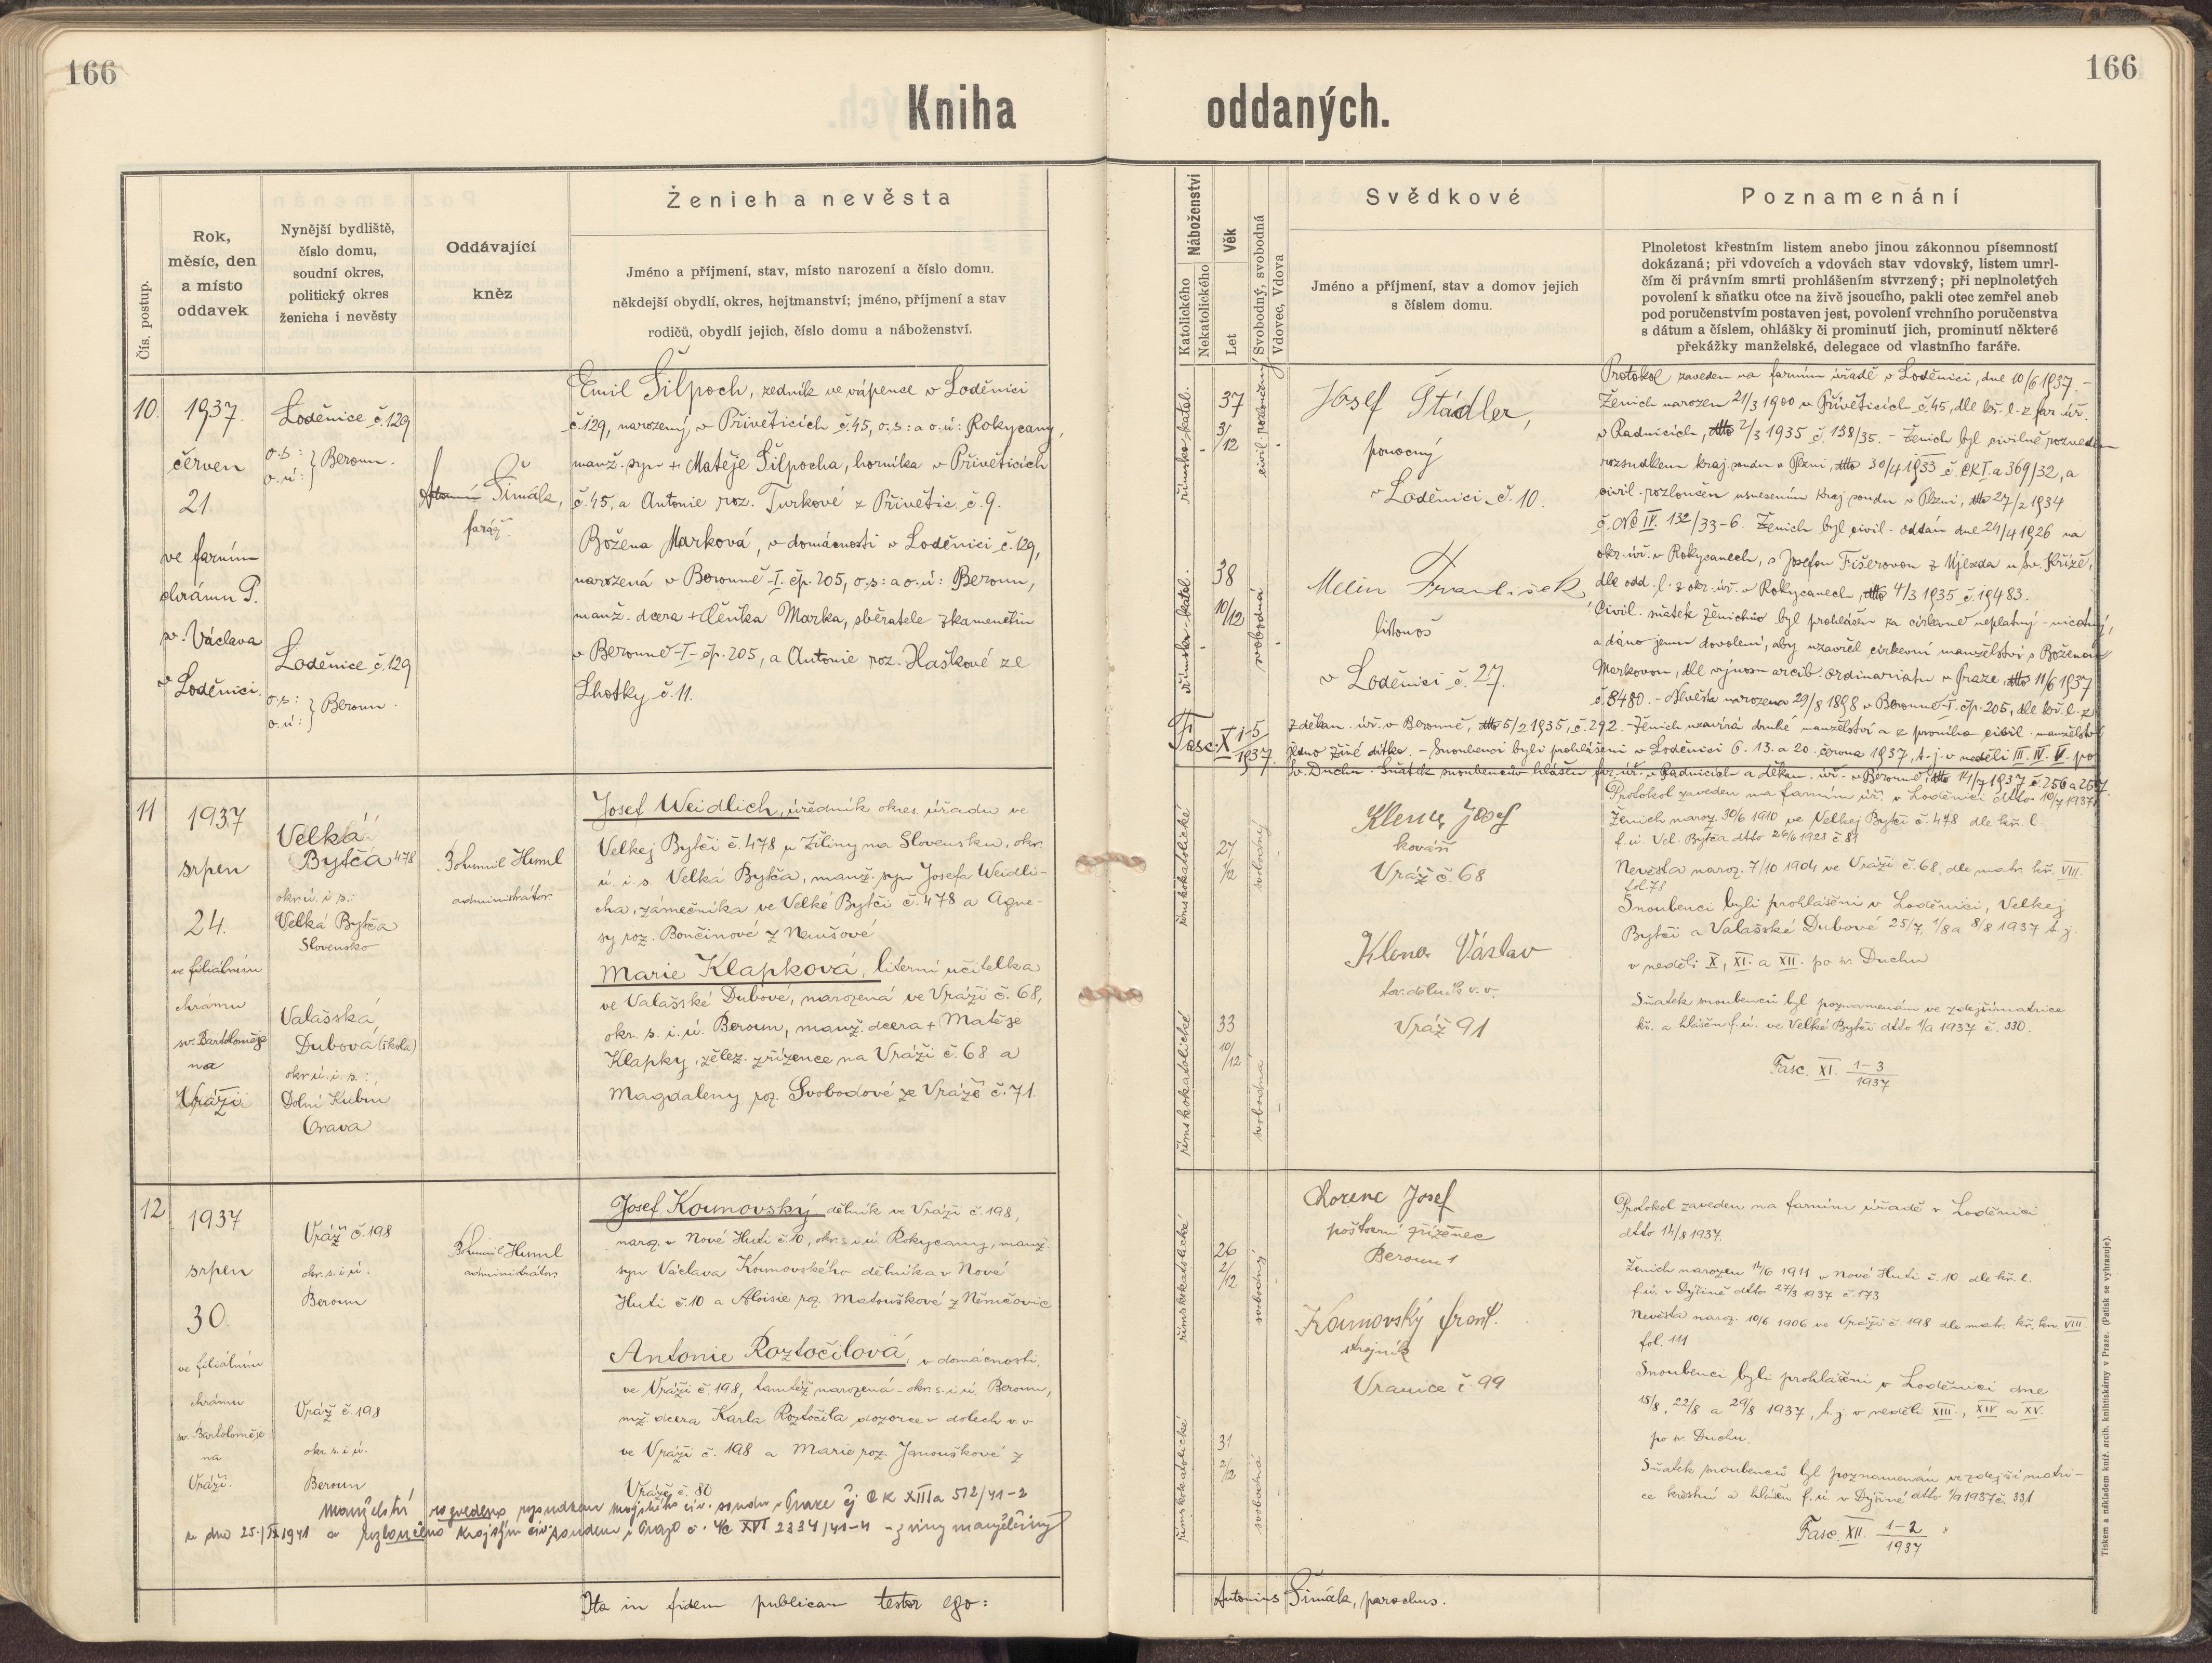 166
166
Kniha oddaných.
Čís. postup.
Rok,
měsíc, den
a místo
oddavek
Nynější bydliště,
číslo domu,
soudní okres,
politický okres
ženicha i nevěsty
Oddávající
kněz
Ženich a nevěsta
Jméno a příjmení, stav, místo narození a číslo domu.
někdejší obydlí, okres, hejtmanství; jméno, příjmení a stav
rodičů, obydlí jejich, číslo domu a náboženství.
Náboženství
Katolického
Nekatolického
Věk
Let
Svobodný, svobodná
Vdovec, Vdova
Svědkové
Jméno a příjmení, stav a domov jejich
s číslem domu.
Poznamenání
Plnoletost křestním listem anebo jinou zákonnou písemností
dokázaná; při vdovcích a vdovách stav vdovský, listem umrl-
čím či právním smrti prohlášením stvrzený; při neplnoletých
povolení k sňatku otce na živě jsoucího, pakli otec zemřel aneb
pod poručenstvím postaven jest, povolení vrchního poručenstva
s dátum a číslem, ohlášky či prominutí jich, prominutí některé
překážky manželské, delegace od vlastního faráře.
10.
1937.
červen
21.
ve farním
chrámu P.
sv. Václava
v Loděnici.
Loděnice č. 129
o.s:
o.ú: } Beroun.
Loděnice č. 129
o.s:
o.ú: } Beroun.
Šimák,
farář.
Emil Šilpoch, zedník ve vápence v Loděnici
č. 129, narozený v Přívěticích č. 45, o.s: a o.ú: Rokycany,
manž. syn + Matěje Šilpocha, horníka v Přívěticích
č. 45, a Antonie roz. Turkové z Přívětic č. 9.
Božena Marková, v domácnosti v Loděnici č. 129,
narozená v Berouně-I. čp. 205, o.s: a o.ú: Beroun,
manž. dcera + Čeňka Marka, sběratele zkamenělin
v Berouně-I- čp. 205, a Antonie roz. Haškové ze
Lhotky č. 11.
římsko-katol.
37
3/12
civil. rozloučený
Josef Štádler,
ponocný
v Loděnici č. 10.
římsko-katol.
38
10/12
svobodná
František
listonoš
v Loděnici č. 27.
Protokol zaveden na farním úřadě v Loděnici, dne 10/6 1937. -
Ženich narozen 21/3 1900 v Přívěticích č. 45, dle kř. l. z far. úř.
v Radnicích, dtto 2/3 1935 č. 138/35. - Ženich byl civilně rozveden
rozsudkem kraj. soudu v Plzni, dtto 30/4 1933 č. CK I. a 369/32, a
civil. rozloučen usnesením kraj. soudu v Plzni, dtto 27/2 1934
č. Nc IV. 132/33-6. Ženich byl civil. oddán dne 24/4 1926 na
okr. úř. v Rokycanech, s Josefou Fišerovou z Újezda u Sv. Kříže,
dle odd. l. z okr. úř. v Rokycanech, dtto 4/3 1935 č. 19483.
Civil. sňatek ženichův byl prohlášen za církevně neplatný - nicotný,
a dáno jemu dovolení, aby uzavřel církevní manželství s Boženou
Markovou, dle výnosu arcib. ordinariátu v Praze, dtto 11/6 1937
č. 8480. - Nevěsta narozena 29/8 1898 v Berouně-I. čp. 205, dle kř. l. z
z děkan. úř. v Berouně, dtto 5/2 1935, č. 292. - Ženich uzavírá druhé manželství a z prvního civil. manželství
jedno živé dítko. - Snoubenci byli prohlášeni v Loděnici 6. 13. a 20. června 1937, t.j. v neděli III. IV. V. po
Sv. Duchu. Sňatek snoubenců hlášen far. úř. v Radnicích a děkan. úř. v Berouně, dtto 14/7 1937, č. 256 a 257.
Fasc. X 1-5/1937.
11
1937
srpen
24.
ve filiálním
chrámu
sv. Bartoloměje
na
Vráži
Velká
Bytča 478
okr. ú. i s.:
Velká Bytča
Slovensko
Valašská
Dubová (škola)
okr. ú. i. s.:
Dolní Kubín
Orava
Bohumil Huml
administrátor
Josef Weidlich, úředník okres. úřadu ve
Velkej Bytči č. 478 u Žiliny na Slovensku, okr.
ú. i. s. Velká Bytča, manž. syn Josefa Weidli-
cha, zámečníka ve Velké Bytči č. 478 a Agne-
sy roz. Bončinové z Nemšové
Marie Klapková, literní učitelka
ve Valašské Dubové, narozená ve Vráži č. 68,
okr. s. i. ú. Beroun, manž. dcera + Matěje
Klapky, želez. zřízence na Vráži č. 68 a
Magdaleny roz. Svobodové ze Vráže č. 71.
římskokatolické
27
1/12
svobodný
Josef
kovář
Vráž č. 68
římskokatolické
33
10/12
svobodná
Václav
tov. dělník v. v.
Vráž 91
Protokol zaveden na farním úř. v Loděnici dtto 10/7 1937
Ženich naroz. 30/6 1910 ve Velkej Bytči č. 478 dle kř. l.
f. ú. Vel. Bytča dtto 26/6 1923 č. 81
Nevěsta naroz. 7/10 1904 ve Vráži č. 68, dle matr. kř. VIII.
fol. 78
Snoubenci byli prohlášeni v Loděnici, Velkej
Bytči a Valašské Dubové 25/7, 1/8 a 8/8 1937 t.j.
v neděli X, XI. a XII. po sv. Duchu
Sňatek snoubenců byl poznamenán ve zdejší matrice
kř. a hlášen f. ú. ve Velké Bytči dtto 1/9 1937 č. 330.
Fasc. XI. 1-3/1937
12
1937
srpen
30
ve filiálním
chrámu
sv. Bartoloměje
na
Vráži.
Vráž č. 198
okr. s. i ú.
Beroun
Vráž č. 198
okr. s. i ú.
Beroun
Bohumil Huml
administrátor
Josef Kounovský dělník ve Vráži č. 198,
naroz. v Nové Huti č. 10, okr. s. i ú. Rokycany, manž.
syn Václava Kounovského dělníka v Nové
Huti č. 10 a Aloisie roz. Matouškové z Němčovic
Antonie Roztočilová, v domácnosti,
ve Vráži č. 198, tamtéž narozená - okr. s. i ú. Beroun,
mž. dcera Karla Roztočila dozorce v dolech v. v
ve Vráži č. 198 a Marie roz. Janouškové z
Vráže č. 80
Manželství rozvedeno rozsudkem civ. soudu v Praze čj Ck XIIIa 512/41-2
ze dne 25./IX 1941 a rozloučeno krajským civ. soudem v Praze č. Nc XVI 2334/41-4 - z viny manželčiny
římskokatolické
26
2/12
svobodný
Lorenc Josef
poštovní zřízenec
Beroun 1
římskokatolické
31
2/12
svobodná
Kounovský Frant.
strojník
Vranice č 99
Protokol zaveden na farním úřadě v Loděnici
dtto 14/8 1937.
Ženich narozen 14/6 1911 v Nové Huti č. 10 dle kř. l.
f. ú. v Dýšině dtto 27/3 1937 č. 173
Nevěsta naroz. 10/6 1906 ve Vráži č. 198 dle matr. kř. kn. VIII
fol. 111
Snoubenci byli prohlášeni v Loděnici dne
15/8, 22/8 a 29/8 1937, t. j. v neděli XIII., XIV a XV.
po sv. Duchu.
Sňatek snoubenců byl poznamenán ve zdejší matri-
ce křestní a hlášen f. ú. v Dýšině dtto 1/9 1937 č. 331
Fasc. XII. 1-2/1937
Ita in fidem publicam testor ego:
Antonius Šimák, parochus.
Tiskem a nákladem kníž. arcib. knihtiskárny v Praze. (Patisk se vyhrazuje).